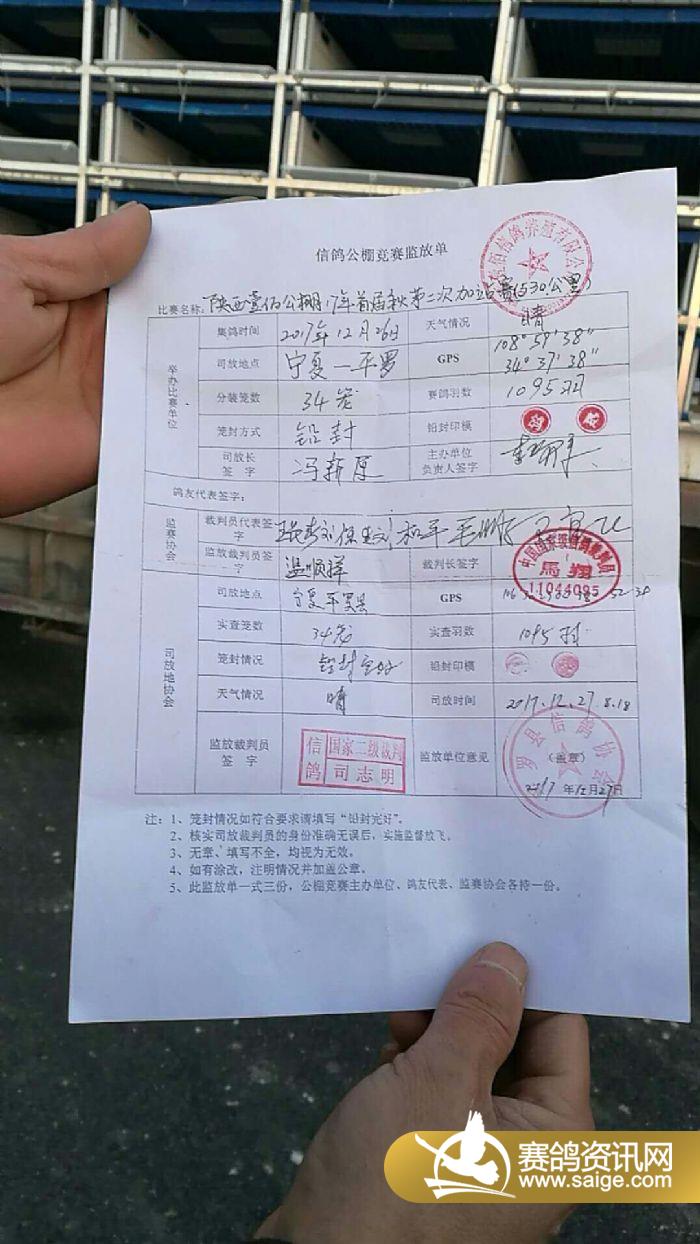 信鸽公棚竞赛监放单
比赛名称：陕西壹佰公棚17年首届秋第二次加站赛（530公里）
举办比赛单位
集鸽时间 2017年12月26日 天气情况 晴
司放地点 宁夏—平罗 GPS 108°59'38" 34°37'38"
分装笼数 34笼 赛鸽羽数 1095羽
笼封方式 铅封 铅封印模
司放长签字 冯新原 主办单位负责人签字
鸽友代表签字：
监赛协会
裁判员代表签字
监放裁判员签字 裁判长签字
中国国家级信鸽裁判员
馬翔
11044085
司放地协会
司放地点 宁夏平罗县 GPS
实查笼数 34笼 实查羽数 1095羽
笼封情况 铅封完好 铅封印模
天气情况 晴 司放时间 2017.12.27.8.18
监放裁判员签字 信鸽 国家二级裁判 司志明 监放单位意见 （盖章）
罗县信鸽协会
2017年12月27日
注：1、笼封情况如符合要求请填写“铅封完好”。
2、核实司放裁判员的身份准确无误后，实施监督放飞。
3、无章、填写不全，均视为无效。
4、如有涂改，注明情况并加盖公章。
5、此监放单一式三份，公棚竞赛主办单位、鸽友代表、监赛协会各持一份。
赛鸽资讯网
www.saige.com